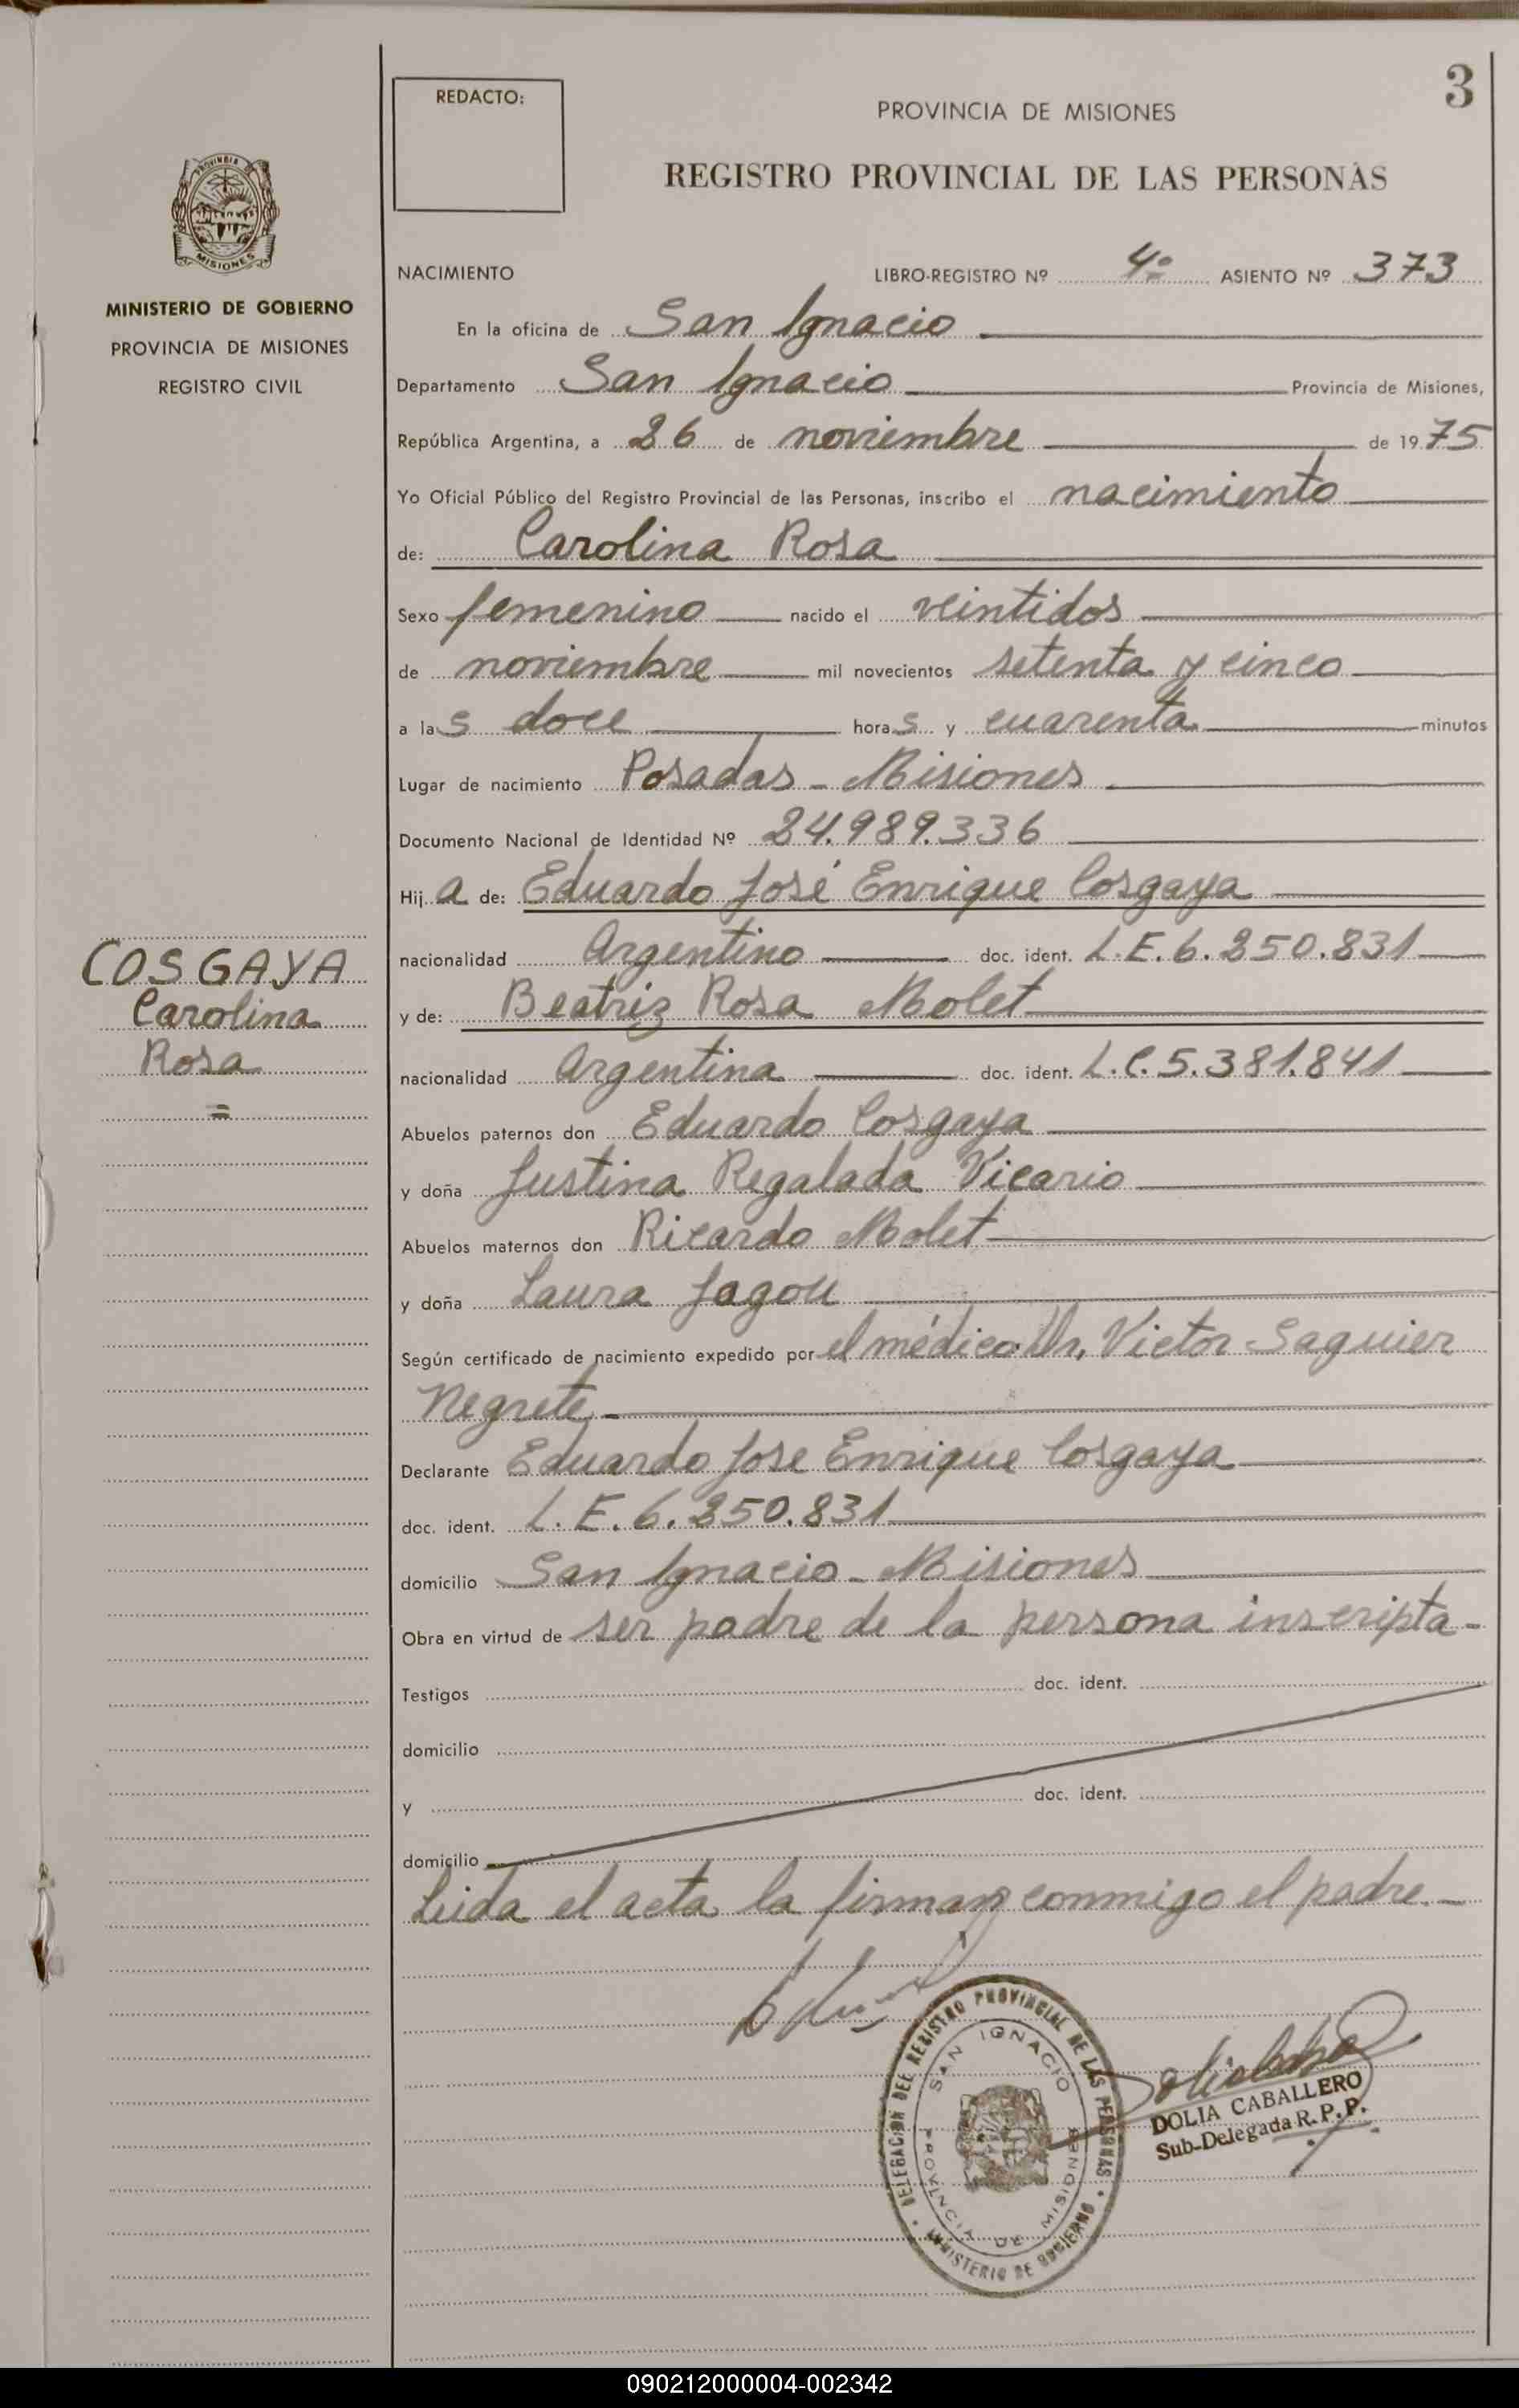 3
REDACTO:
PROVINCIA DE MISIONES
REGISTRO PROVINCIAL DE LAS PERSONAS
PROVINCIA
MISIONES
MINISTERIO DE GOBIERNO
PROVINCIA DE MISIONES
REGISTRO CIVIL
NACIMIENTO LIBRO-REGISTRO Nº 4º ASIENTO Nº 373
En la oficina de San Ignacio
Departamento San Ignacio Provincia de Misiones,
República Argentina, a 26 de noviembre de 1975
Yo Oficial Público del Registro Provincial de las Personas, inscribo el nacimiento
de: Carolina Rosa
Sexo femenino nacido el veintidos
de noviembre mil novecientos setenta y cinco
a las doce horas y cuarenta minutos
Lugar de nacimiento Posadas - Misiones
Documento Nacional de Identidad Nº 24.989.336
Hija de: Eduardo José Enrique Cosgaya
nacionalidad Argentino doc. ident. L.E. 6.250.831
y de: Beatriz Rosa Molet
nacionalidad Argentina doc. ident. L.C. 5.381.841
COSGAYA
Carolina
Rosa
=
Abuelos paternos don Eduardo Cosgaya
y doña Justina Regalada Vicario
Abuelos maternos don Ricardo Molet
y doña Laura Jagou
Según certificado de nacimiento expedido por el médico: Dr. Victor Saguier
Negrete.-
Declarante Eduardo Jose Enrique Cosgaya
doc. ident. L.E. 6.250.831
domicilio San Ignacio - Misiones
Obra en virtud de ser padre de la persona inscripta -
Testigos doc. ident.
domicilio
y doc. ident.
domicilio
Leida el acta la firman conmigo el padre.-
DELEGACION DEL REGISTRO PROVINCIAL DE LAS PERSONAS
SAN IGNACIO
PROVINCIA DE MISIONES
MINISTERIO DE GOBIERNO
DOLIA CABALLERO
Sub-Delegada R.P.P.
090212000004-002342